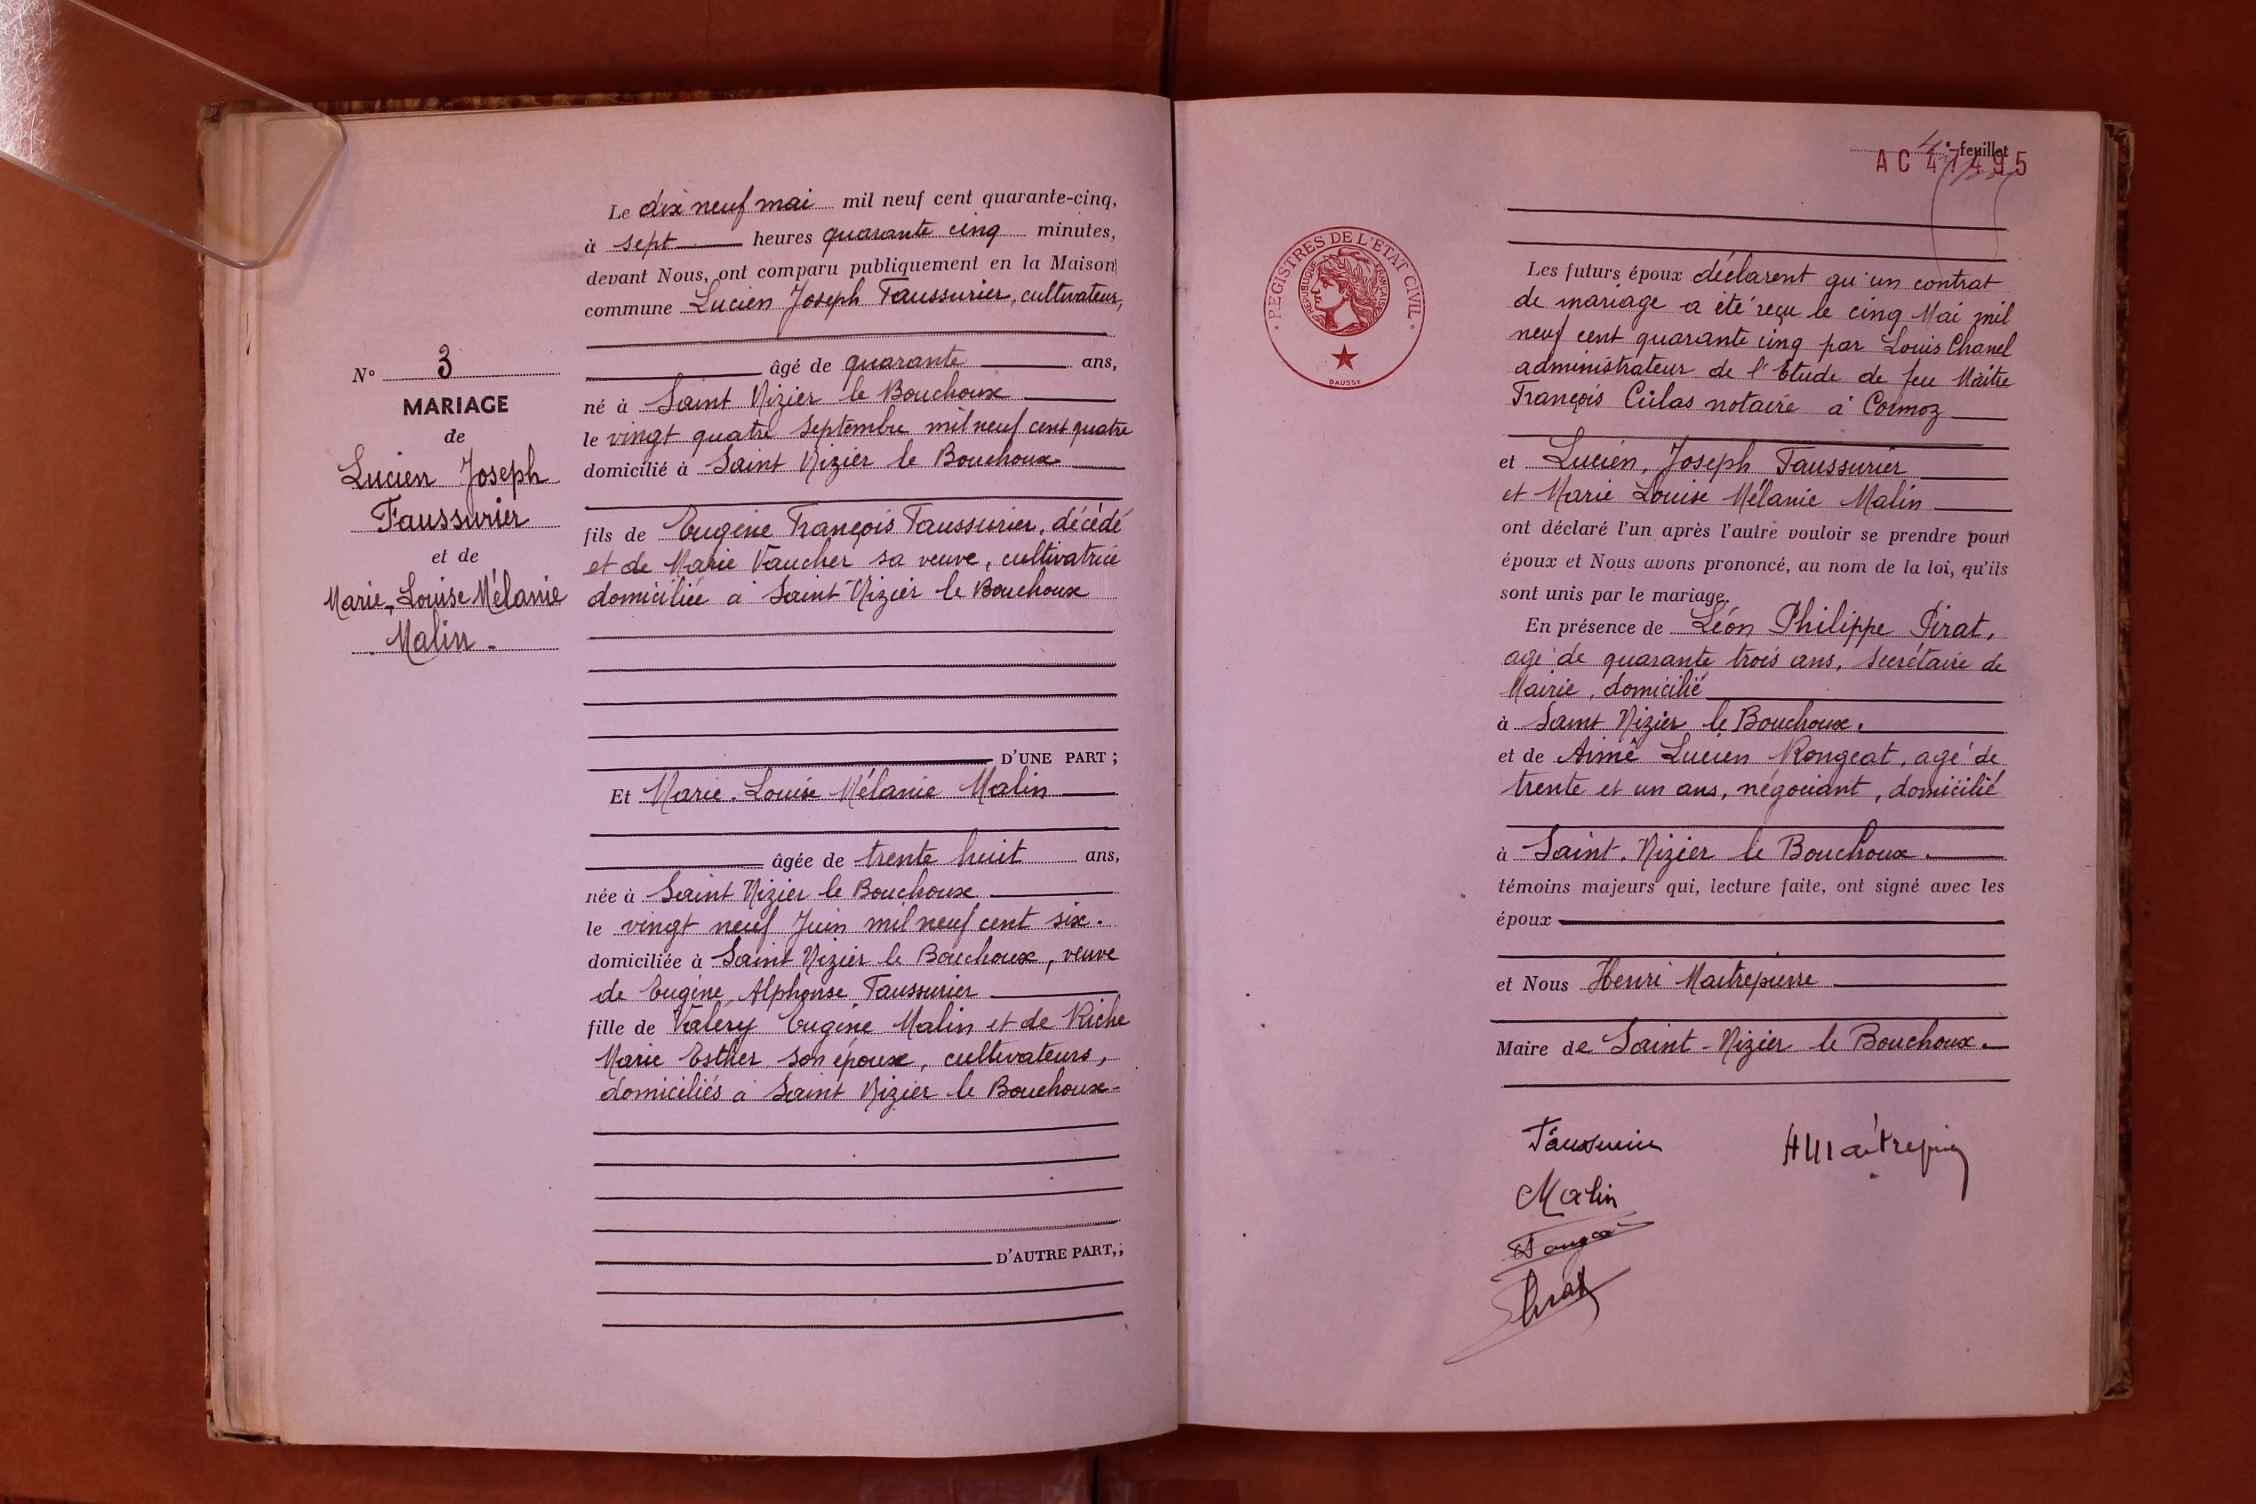 Le dix neuf mai mil neuf cent quarante-cinq,
à sept heures quarante cinq minutes,
devant Nous, ont comparu publiquement en la Maison
commune Lucien Joseph Faussurier, cultivateur,
âgé de quarante ans,
né à Saint Nizier le Bouchoux
le vingt quatre septembre mil neuf cent quatre
domicilié à Saint Nizier le Bouchoux
fils de Eugène François Faussurier, décédé
et de Marie Vaucher sa veuve, cultivatrice
domiciliée à Saint-Nizier le Bouchoux
D'UNE PART ;
Et Marie-Louise Mélanie Malin
âgée de trente huit ans,
née à Saint Nizier le Bouchoux
le vingt neuf Juin mil neuf cent six.
domiciliée à Saint Nizier le Bouchoux, veuve
de Eugène Alphonse Faussurier
fille de Valéry Eugène Malin et de Riche
Marie Esther son épouse, cultivateurs,
domiciliés à Saint Nizier le Bouchoux-
D'AUTRE PART, ;
N° 3
MARIAGE
de
Lucien Joseph
Faussurier
et de
Marie-Louise Mélanie
Malin-
REGISTRES DE L'ETAT CIVIL
REPUBLIQUE FRANÇAISE
DAUSSY
4e feuillet
AC 47495
Les futurs époux déclarent qu'un contrat
de mariage a été reçu le cinq Mai mil
neuf cent quarante cinq par Louis Chanel
administrateur de l'Etude de feu Maître
François Culas notaire à Cormoz
et Lucien, Joseph Faussurier
et Marie Louise Mélanie Malin
ont déclaré l'un après l'autre vouloir se prendre pour
époux et Nous avons prononcé, au nom de la loi, qu'ils
sont unis par le mariage.
En présence de Léon Philippe Pirat,
agé de quarante trois ans, secrétaire de
Mairie, domicilié
à Saint Nizier le Bouchoux.
et de Aimé Lucien Rongeat, agé de
trente et un ans, négociant, domicilié
à Saint-Nizier le Bouchoux.
témoins majeurs qui, lecture faite, ont signé avec les
époux
et Nous Henri Maitrepierre
Maire de Saint-Nizier le Bouchoux.
Faussurier
HMaitrepierre
Malin